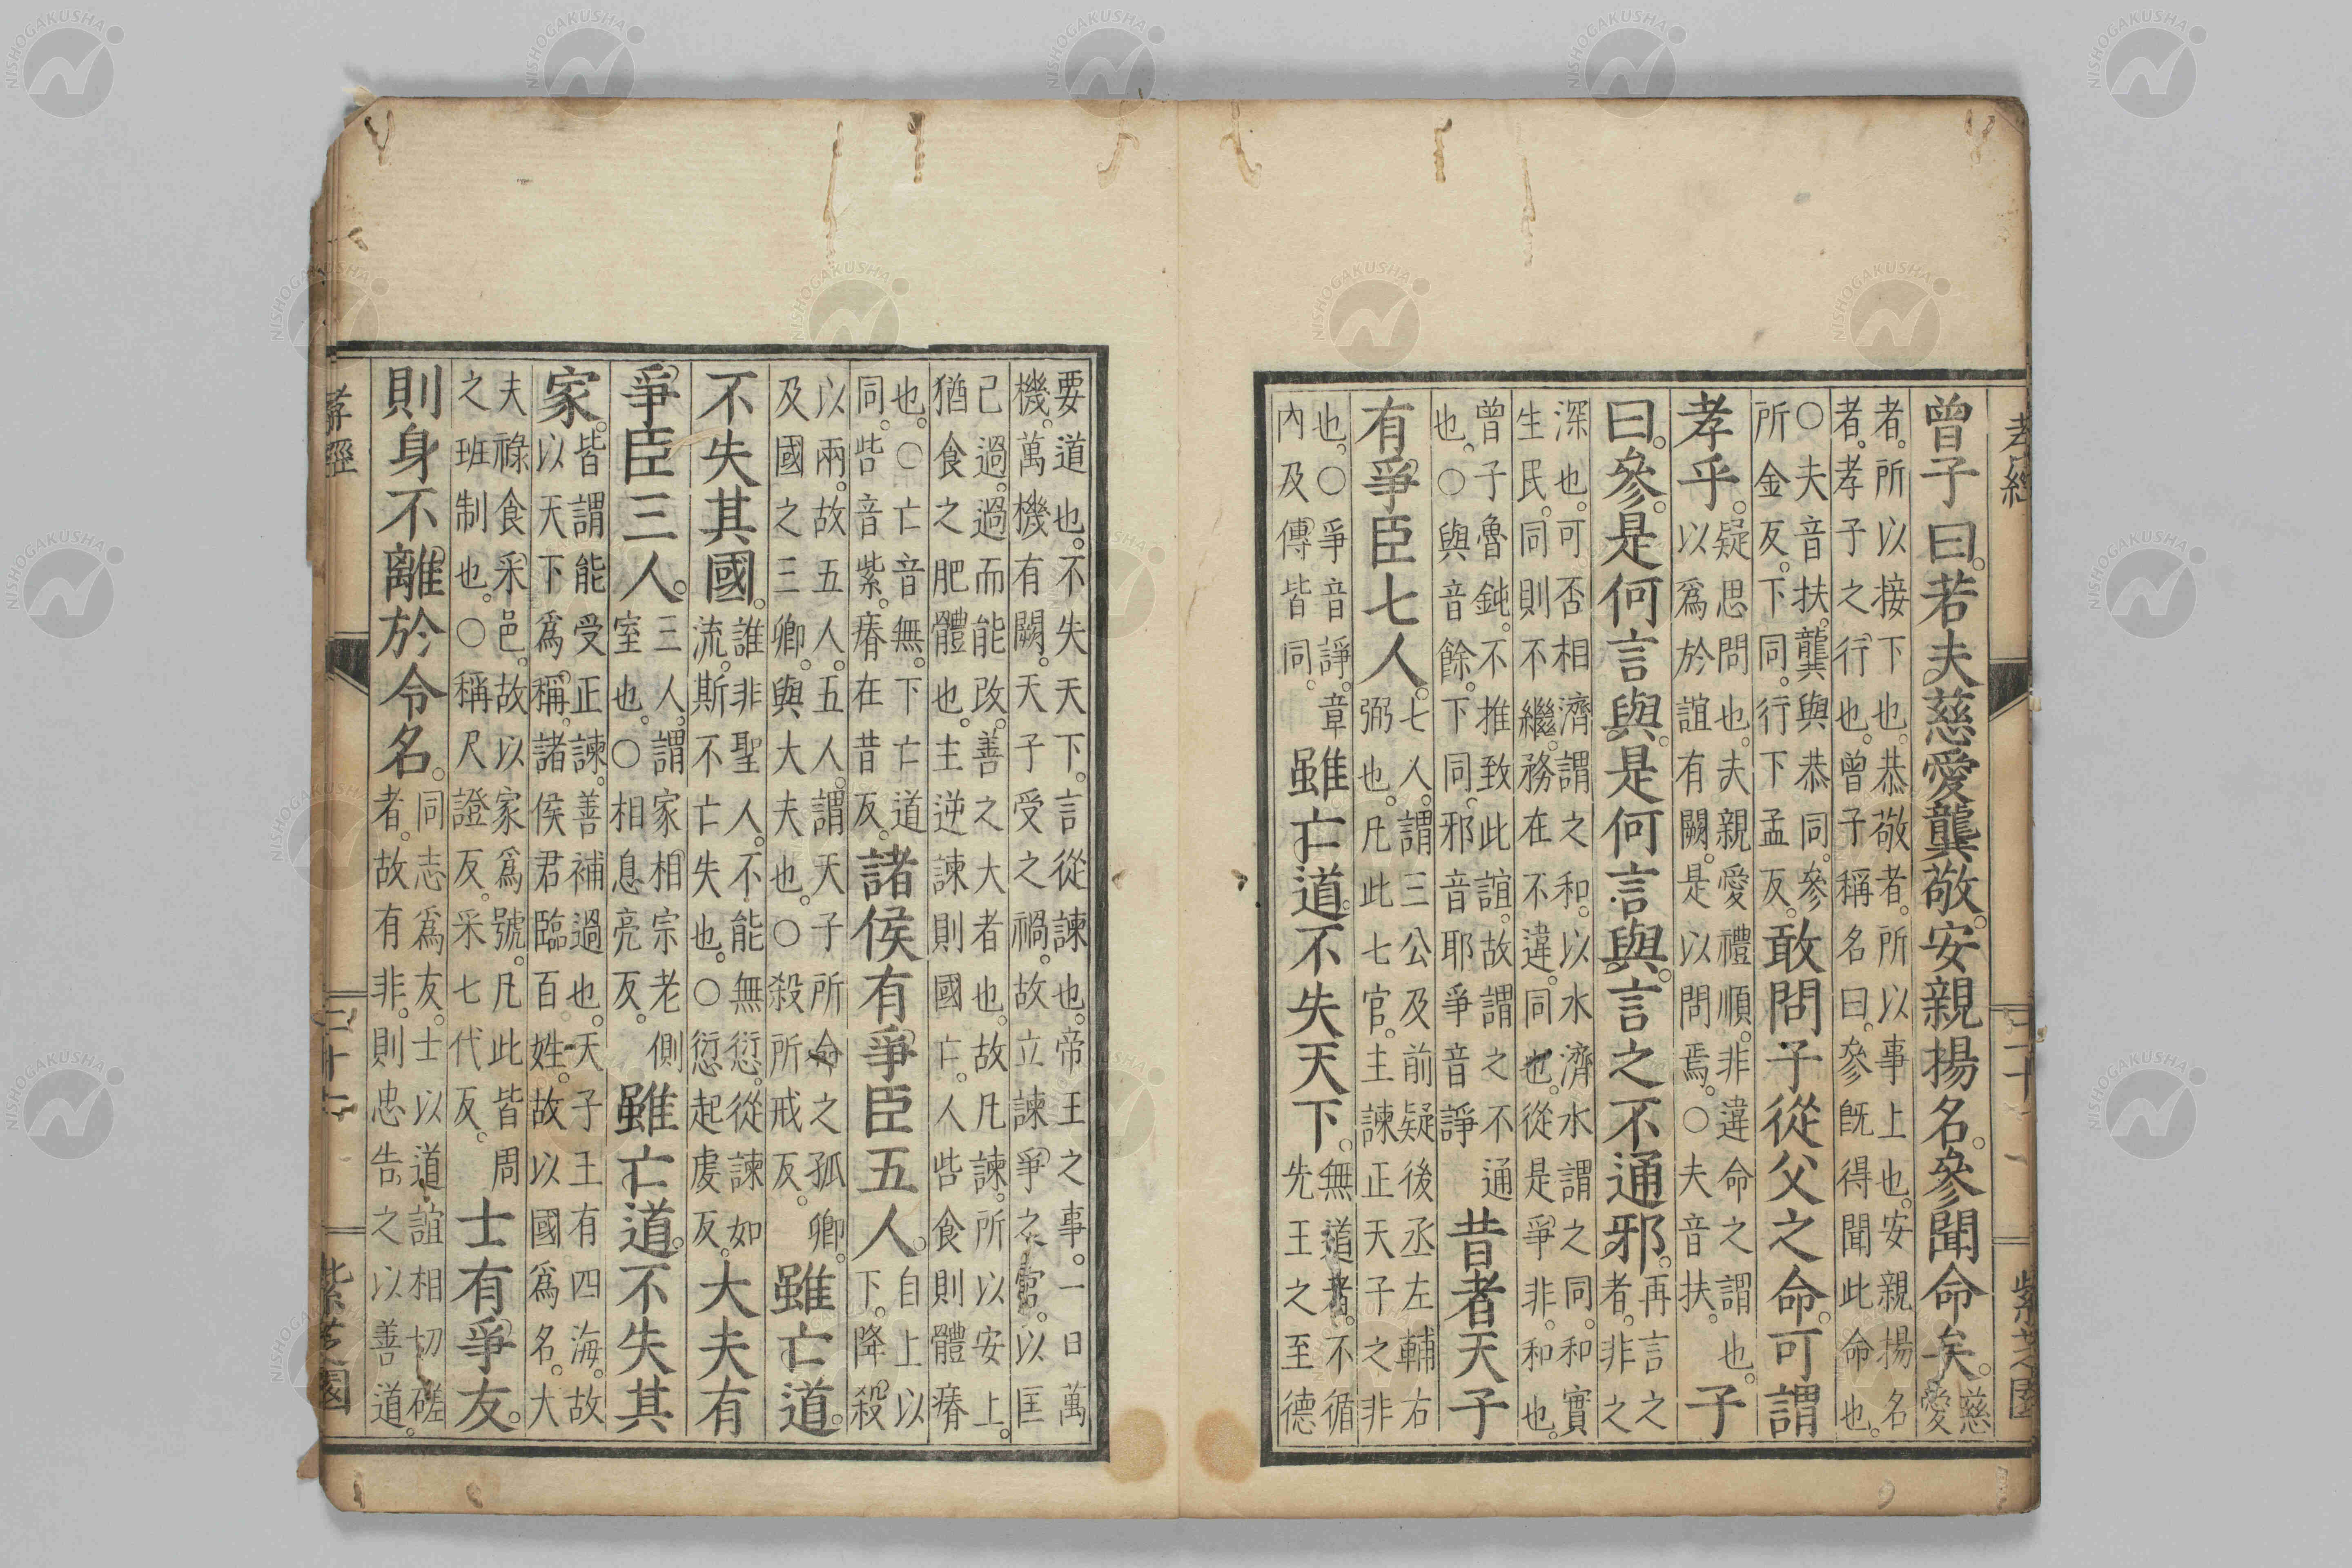 孝經 二十 紫芝園
曾子曰。若夫慈愛龔敬。安親揚名。參聞命矣。慈愛
者。所以接下也。恭敬者。所以事上也。安親揚名
者。孝子之行也。曾子稱名曰。參旣得聞此命也。
○夫音扶。龔與恭同。參所金反。下同。行下孟反。敢問子從父之命。可謂
孝乎。疑思問也。夫親愛禮順。非違命之謂也。以爲於誼有闕。是以問焉。○夫音扶。子
曰。參。是何言與。是何言與。言之不通邪。再言之者。非之
深也。可否相濟謂之和。以水濟水謂之同。和實
生民。同則不繼。務在不違。同也。從是爭非。和也。
曾子魯鈍。不推致此誼。故謂之不通也。○與音餘。下同。邪音耶爭音諍昔者天子
有爭臣七人。七人。謂三公及前疑後丞左輔右弼也。凡此七官。主諫正天子之非
也。○爭音諍。章內及傳皆同。雖亡道。不失天下。無道者。不循先王之至德
要道也。不失天下。言從諫也。帝王之事。一日萬
機。萬機有闕。天子受之禍。故立諫爭之官。以匡
己過。過而能改。善之大者也。故凡諫。所以安上。
猶食之肥體也。主逆諫則國亡。人呰食則體瘠
也。○亡音無。下亡道同。呰音紫。瘠在昔反。諸侯有爭臣五人。自上以下。降殺
以兩。故五人。五人。謂天子所命之孤卿。及國之三卿。與大夫也。○殺所戒反。雖亡道。
不失其國。誰非聖人。不能無愆。從諫如流。斯不亡失也。○愆起虔反。大夫有
爭臣三人。三人。謂家相宗老側室也。○相息亮反。雖亡道。不失其
家。皆謂能受正諫。善補過也。天子王有四海。故以天下爲稱。諸侯君臨百姓。故以國爲名。大
夫祿食采邑。故以家爲號。凡此皆周之班制也。○稱尺證反。采七代反。士有爭友。
則身不離於令名。同志爲友。士以道誼相切磋者。故有非。則忠告之以善道。
孝經 紫芝園
NISHOGAKUSHA